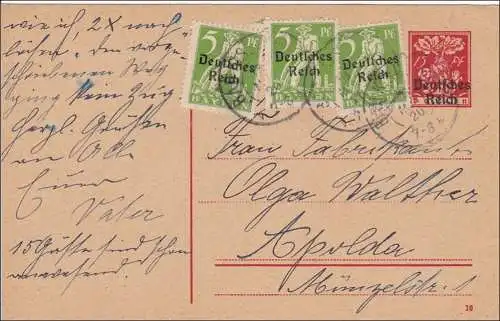 wie ich, 2 x nach
" den vorge-
schiebenen Weg
ging kein Zug
Herzl. Grüßen
an Olli
Euer
Vater
15 Gäste sind schon
anwesend!
5 Pf
Deutsches
Reich
5 Pf
Deutsches
Reich
5 Pf
Deutsches
Reich
Deutsches
Reich
20
7-8
Frau Fabrikant
Olga Walther
Apolda
Münzelstr. 1
30